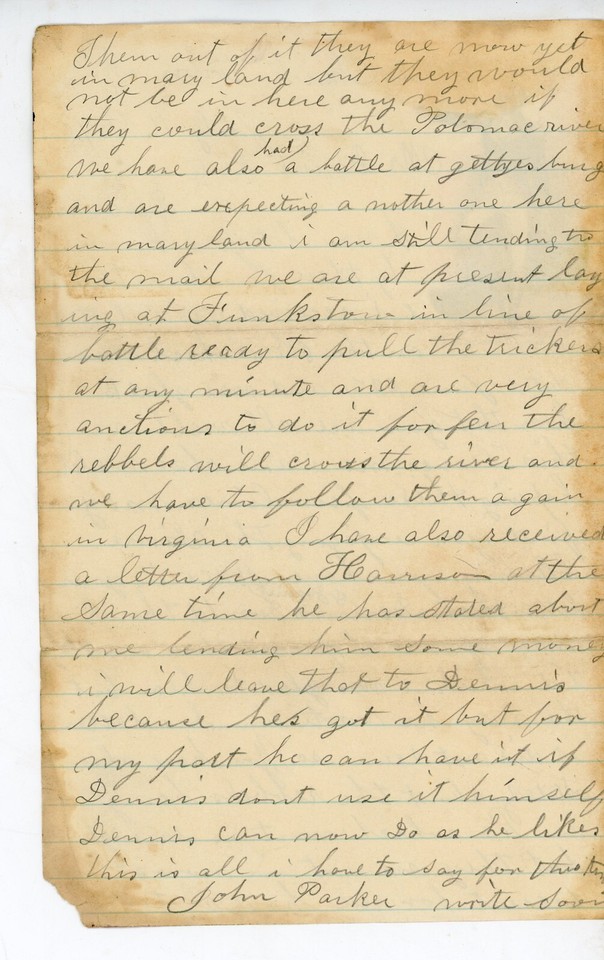 Them out of it they are now yet
in mary land but they would
not be in here any more if
they could cross the Potomac river
we have also had a battle at gettyesburg
and are exepecting a nother one here
in mary land i am still tending to
the mail we are at present lay
ing at Funkstown in line of
battle ready to pull the trickers
at any minute and are very
anctious to do it for feer the
rebbels will cross the river and
we have to follow them again
in virginia I have also received
a letter from Harrison at the
Same time he has stated about
me lending him some money
i will leave that to Dennis
because hes got it but for
my part he can have it if
Dennis dont use it himself
Dennis can now Do as he likes
this is all i have to say for this time
John Parker write soon